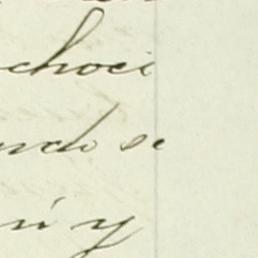 choci
ndo se
ní y